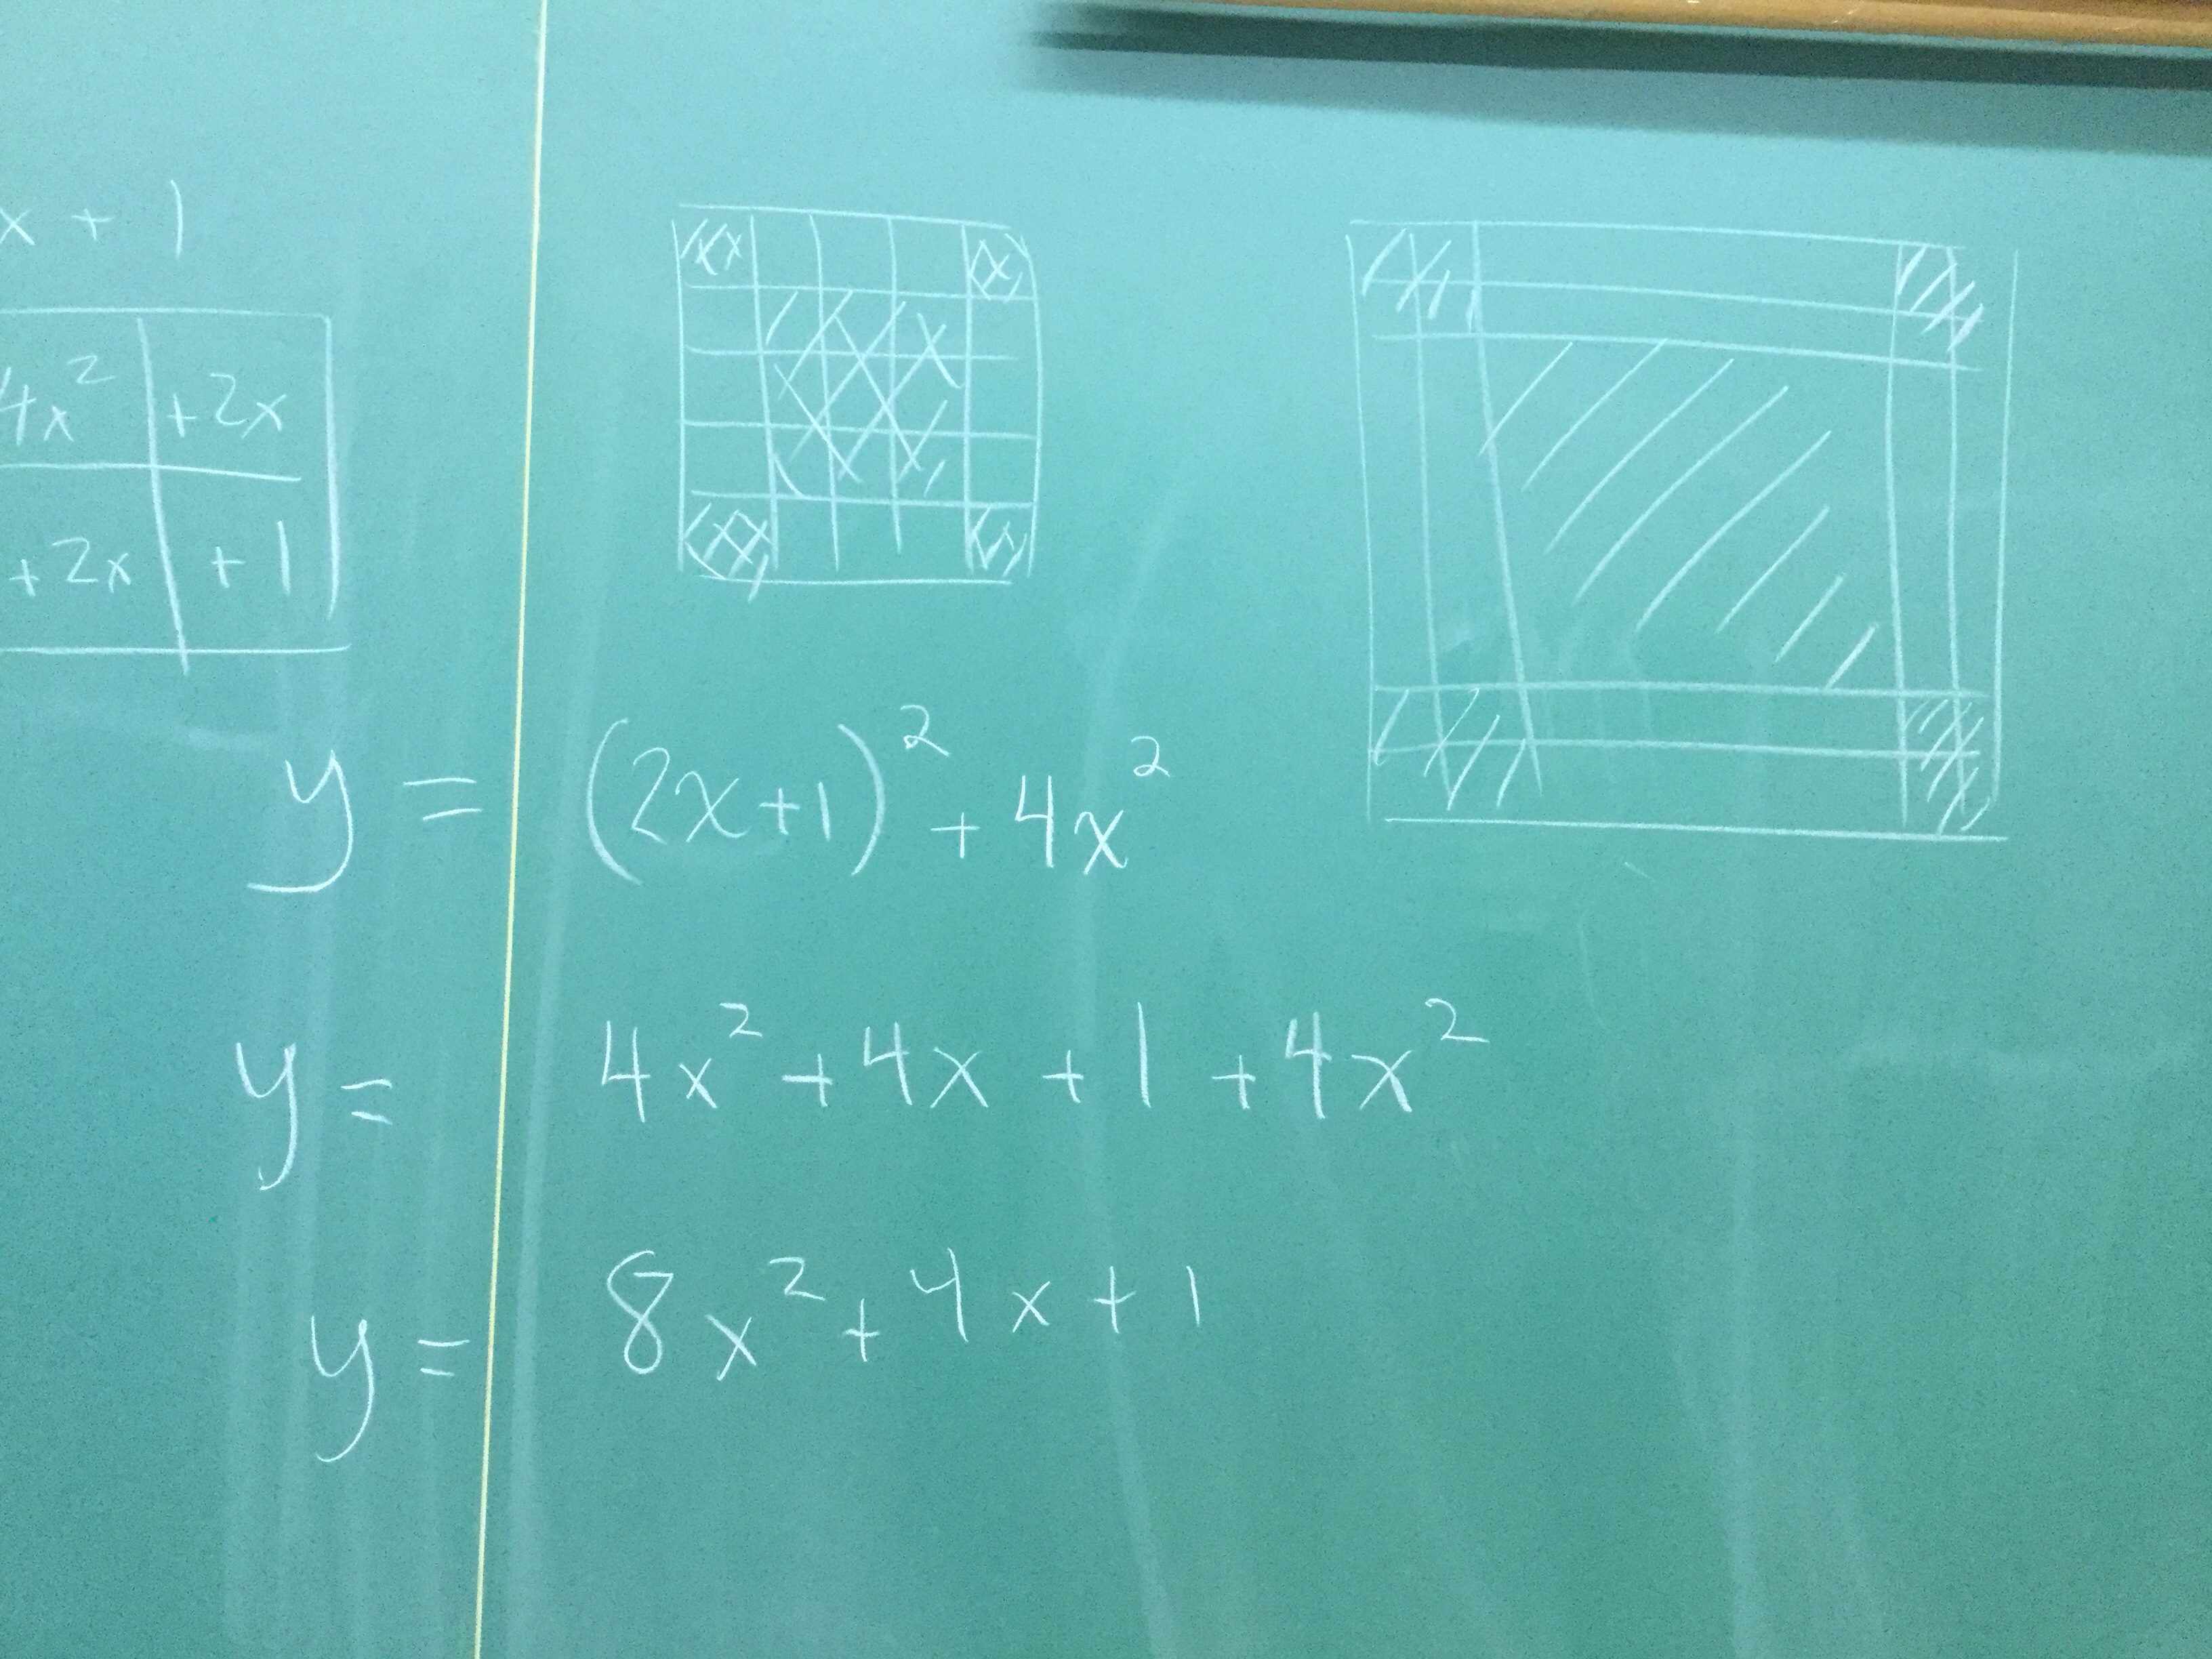 x + 1
4x² +2x
+2x +1
y = (2x+1)² + 4x²
y = 4x² + 4x + 1 + 4x²
y = 8x² + 4x + 1